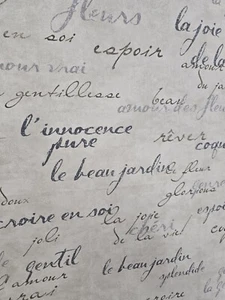 fleurs
la joie
en soi
espoir
de la
amour vrai
amour
du
gentillesse
beau
amour des fleurs
l'innocence
pure
rêver
le beau jardin
la fleur
glorious
doux
croire en soi
la joie
espoir
joli
chéri
de la vie
gentil
le beau jardin
amour
splendide
vrai
croire